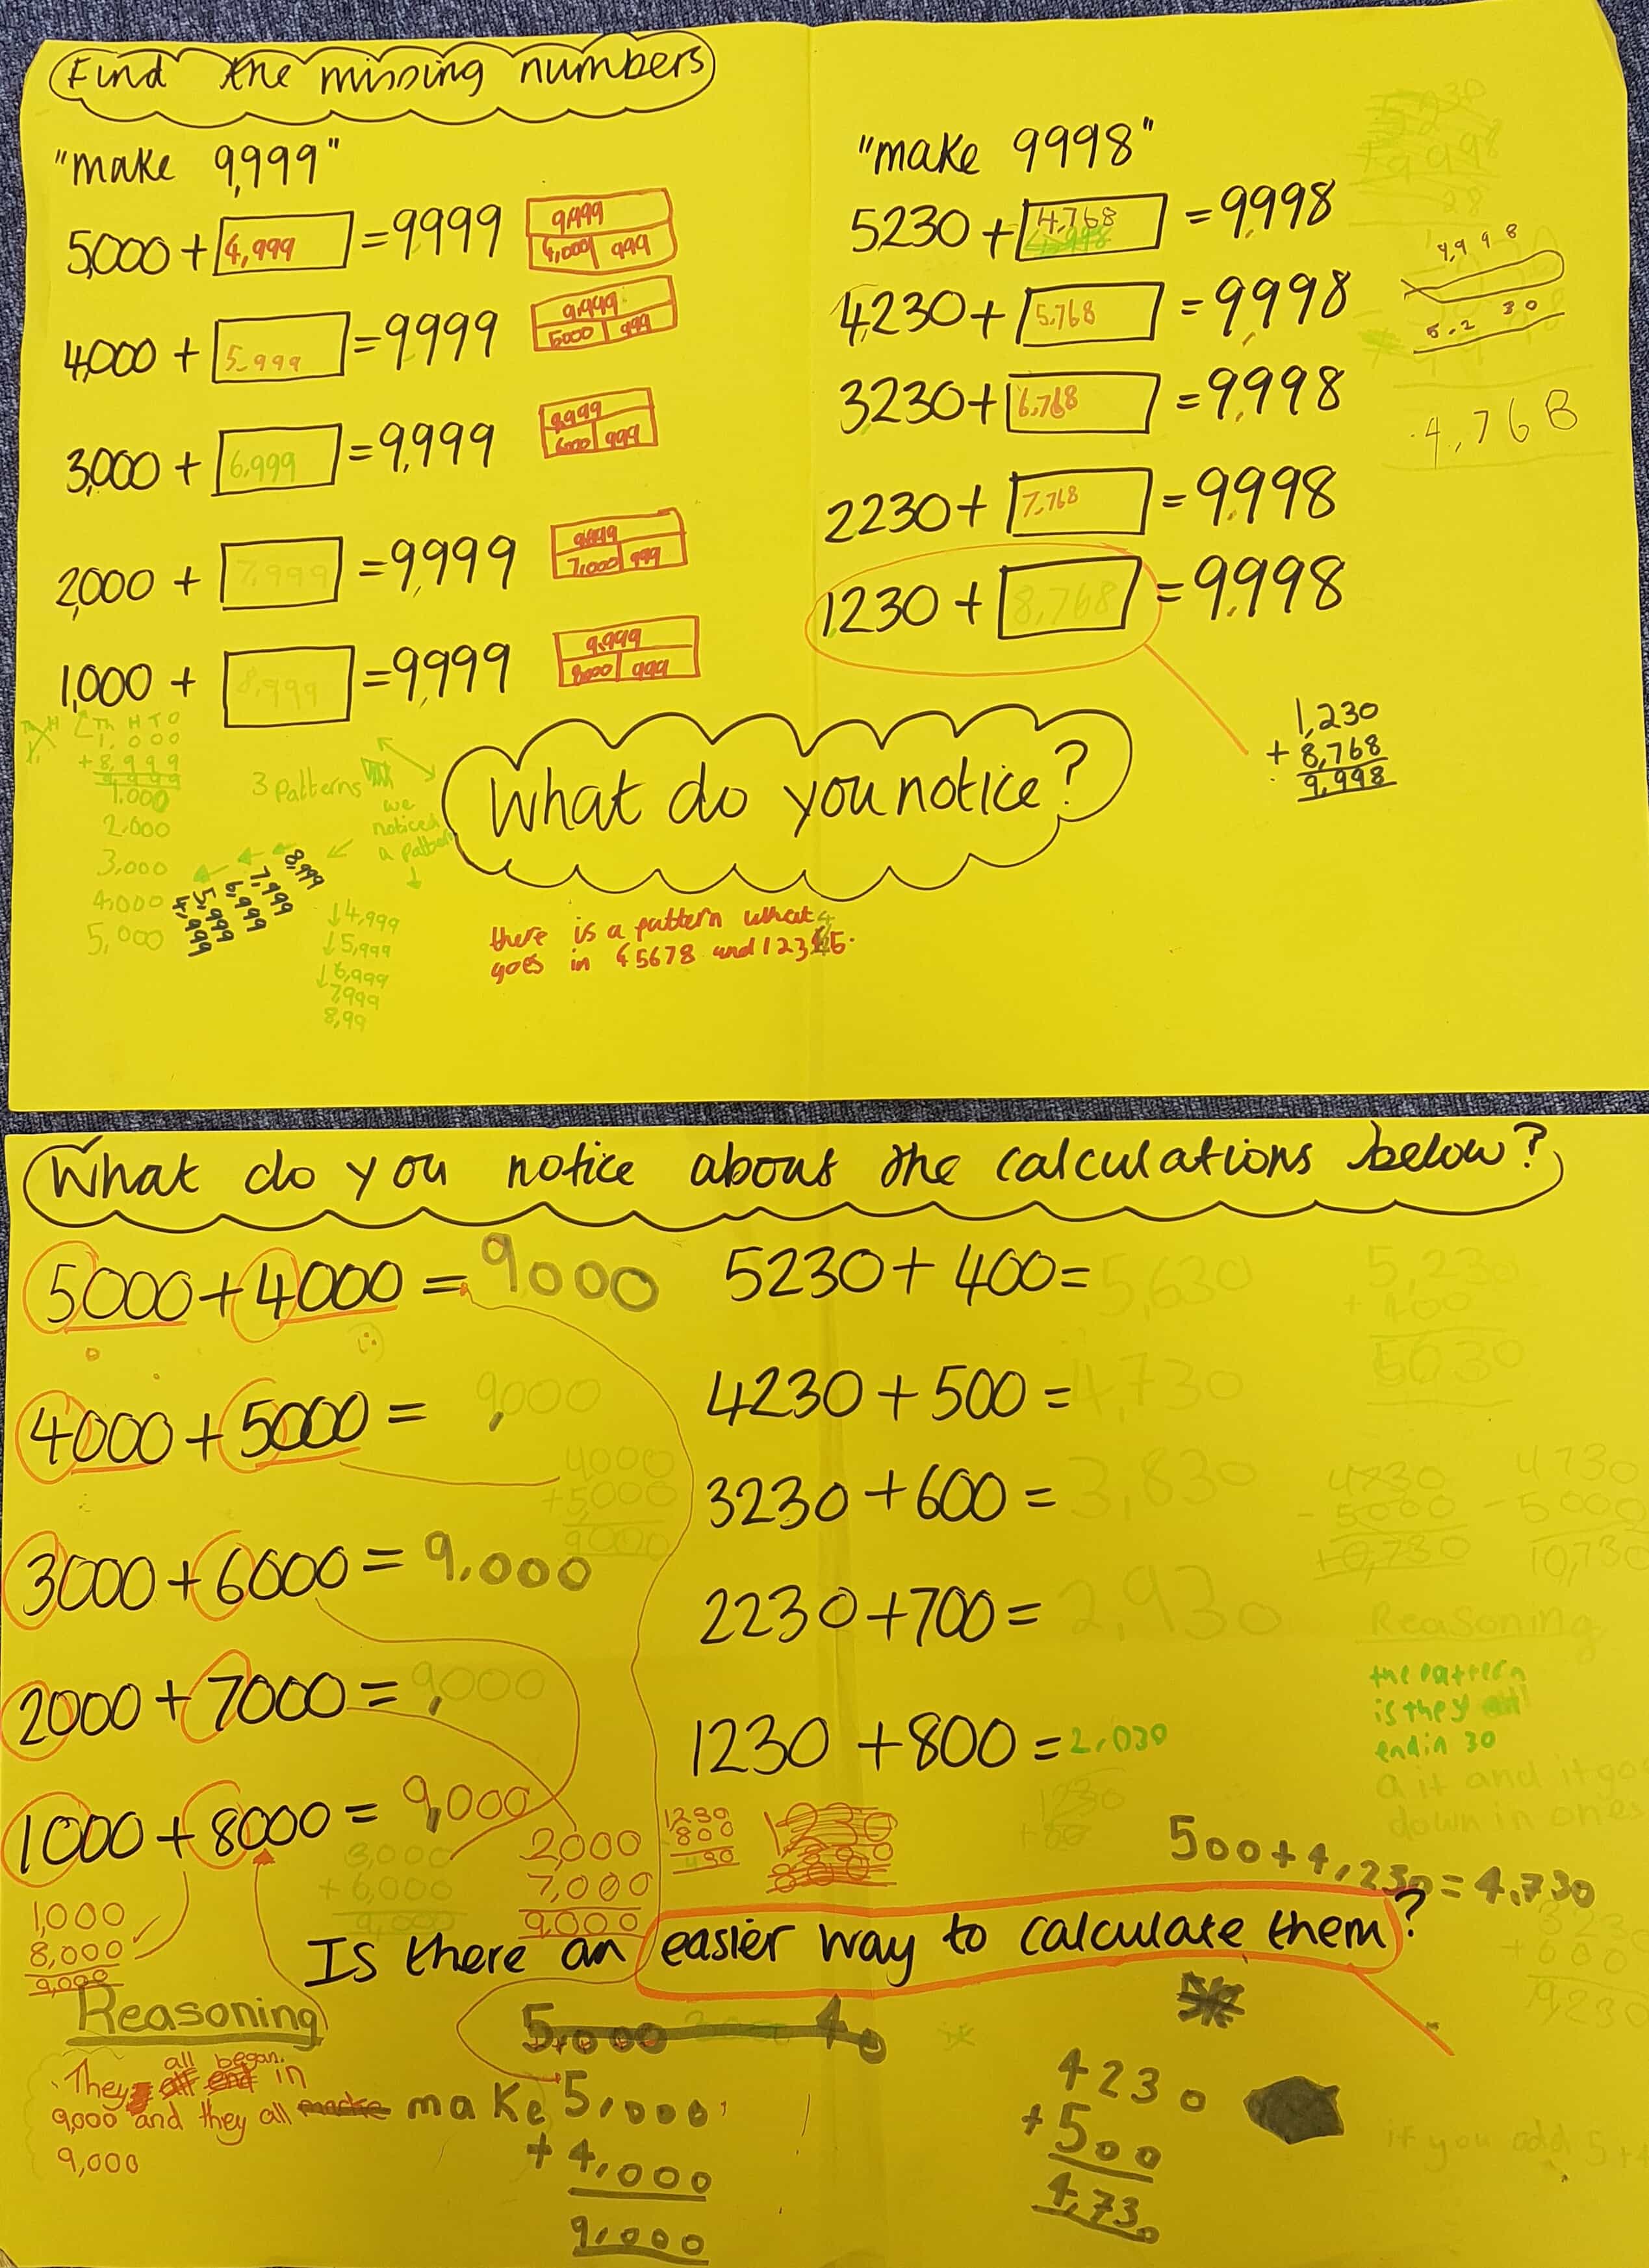 Find the missing numbers
"make 9,999"
5,000 + 4,999 = 9,999
9,999
4,000 999
4,000 + 5,999 = 9,999
9,999
5000 999
3,000 + 6,999 = 9,999
9,999
6000 999
2,000 + 7,999 = 9,999
9,999
7,000 999
1,000 + 8,999 = 9,999
9,999
8000 999
"make 9998"
5230 + 4,768 = 9,998
4,230 + 5,768 = 9,998
3230 + 6,768 = 9,998
2230 + 7,768 = 9,998
1230 + 8,768 = 9,998
9,998
5,230
4,768
1,230
+ 8,768
9,998
What do you notice?
Th H T O
1,000
+ 8,999
9,999
1,000
2,000
3,000
4,000
5,000
3 Patterns
we
noticed
a pattern
8,999
7,999
6,999
5,999
4,999
4,999
5,999
6,999
7,999
8,99
there is a pattern what
goes in 45678 and 12345.
What do you notice about the calculations below?
5000 + 4000 = 9000
4000 + 5000 = 9,000
4000
+5000
9000
3000 + 6000 = 9,000
2000 + 7000 = 9,000
1000 + 8000 = 9,000
3,000
+ 6,000
9,000
2,000
7,000
9,000
1,000
8,000
9,000
5230 + 400 = 5,630
4230 + 500 = 4,730
3230 + 600 = 3,830
2230 + 700 = 2,930
1230 + 800 = 2,030
5,230
+ 400
4730
- 5000
10,730
4730
- 5000
10,730
Reasoning
the pattern
is they all
end in 30
a it and it go
down in ones
1230
800
1230
500 + 4,230 = 4,730
Is there an easier way to calculate them?
Reasoning
They all began in
9,000 and they all make
9,000
5,000
+ 4,000
9,000
4230
+ 500
4,730
3230
+ 600
9230
if you add 5+4